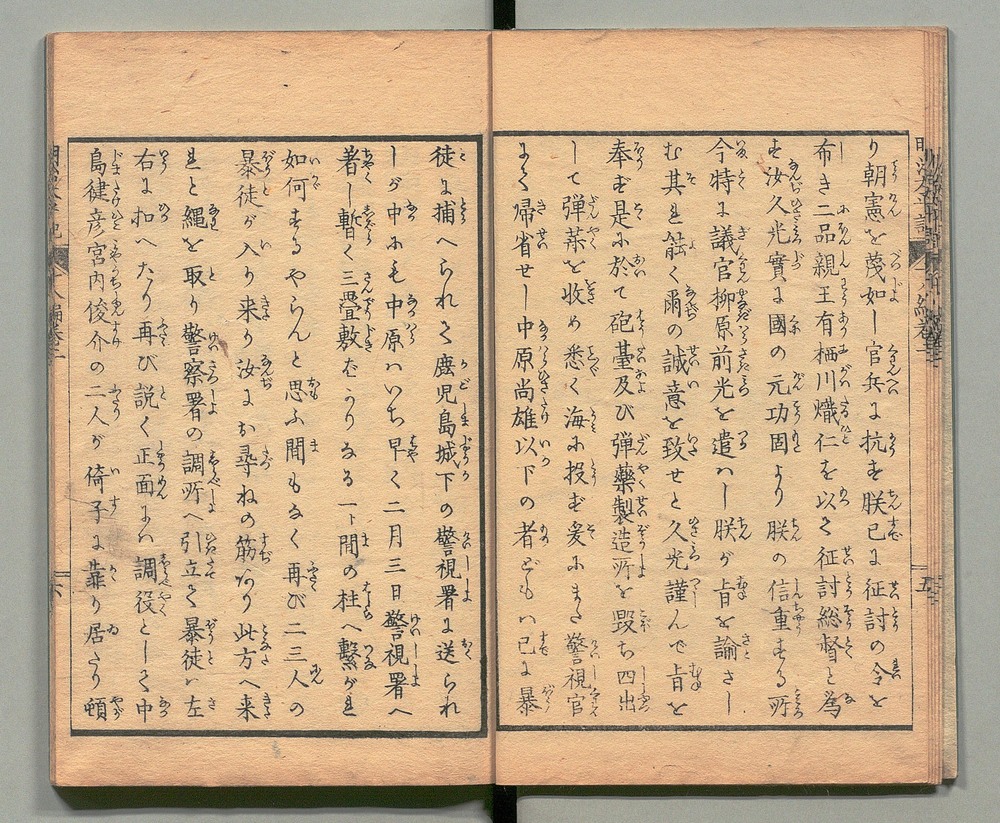 り朝憲を蔑如し官兵に抗す朕已に征討の令を
布き二品親王有栖川熾仁を以て征討総督と為
す汝久光實に國の元功固より朕の信重する所
今特に議官柳原前光を遣ハし朕が旨を諭さし
む其れ能く爾の誠意を致せと久光謹んで旨を
奉ず是に於て砲䑓及び弾藥製造所を毀ち四出
して弾薬を收め悉く海に投ず爰にまた警視官
にて帰省せし中原尚雄以下の者どもハ已に暴
五
徒に捕へられて鹿児島城下の警視署に送られ
しが中にも中原ハいち早く二月三日警視署へ
着し暫く三畳敷ばかりなる一ト間の柱へ繋がれ
如何するやらんと思ふ間もなく再び二三人の
暴徒が入り来り汝にお尋ねの筋あり此方へ来
れと縄を取り警察署の調所へ引立て暴徒ハ左
右に扣へたり再び説く正面にハ調役として中
島健彦宮内俊介の二人が倚子に靠り居たり頓
六